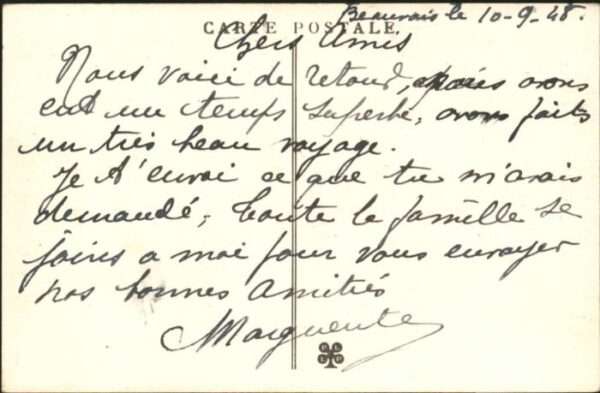 Beauvais le 10-9-48.
CARTE POSTALE.
Chers Amis
Nous voici de retour, avons
eut un temps superbe, avons faits
un très beau voyage.
Je t'envoi ce que tu m'avais
demandé, toute la famille se
joins a moi pour vous envoyer
nos bonnes amitiés
Marguerite